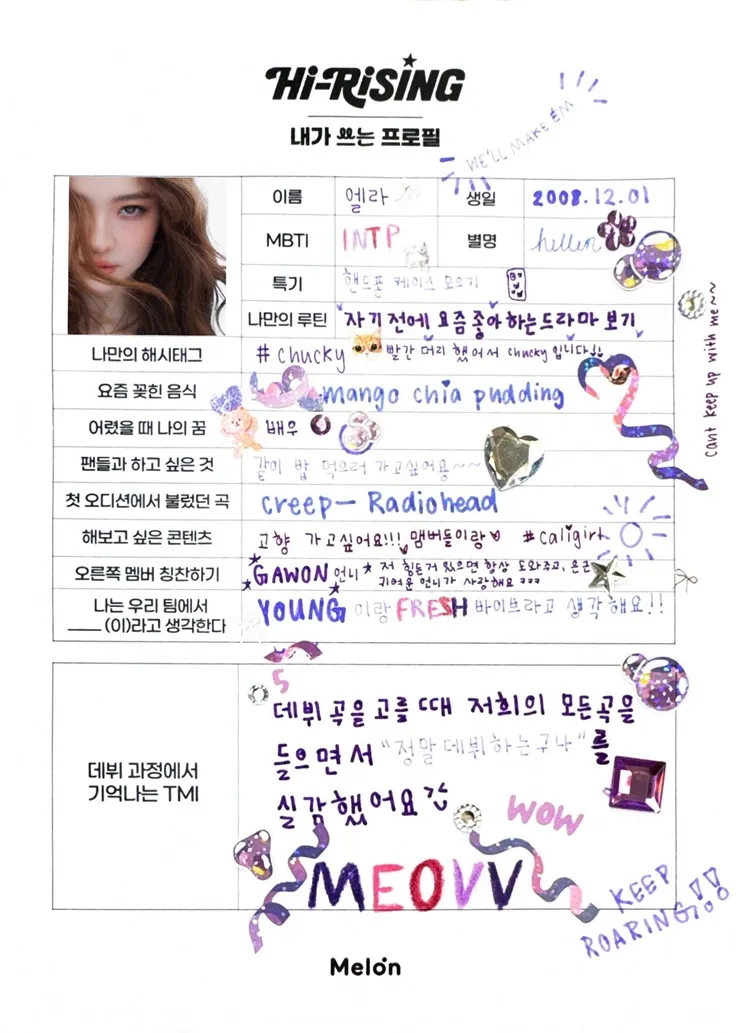 Hi-RiSiNG
내가 쓰는 프로필
WE'LL MAKE EM
이름 엘라 생일 2008.12.01
MBTI INTP 별명 hellen
특기 핸드폰 케이스 모으기
나만의 루틴 자기 전에 요즘 좋아하는 드라마 보기
나만의 해시태그 # chucky 빨간 머리 했어서 chucky 입니다!!
요즘 꽂힌 음식 mango chia pudding
어렸을 때 나의 꿈 배우
팬들과 하고 싶은 것 같이 밥 먹으러 가고싶어용~~
첫 오디션에서 불렀던 곡 creep — Radiohead
해보고 싶은 콘텐츠 고향 가고싶어요!!! 멤버들이랑♡ #caligirl
오른쪽 멤버 칭찬하기 GAWON 언니 저 힘든거 있으면 항상 도와주고, 은근
귀여운 언니가 사랑해요 ㅋㅋㅋ
나는 우리 팀에서
____ (이)라고 생각한다
YOUNG 이랑 FRESH 바이브라고 생각해요!!
cant keep up with me~~
데뷔 과정에서
기억나는 TMI
5
데뷔 곡을 고를 때 저희의 모든곡을
들으면서 "정말 데뷔하는구나"를
실감했어요
WOW
MEOVV
KEEP
ROARING!!
Melon